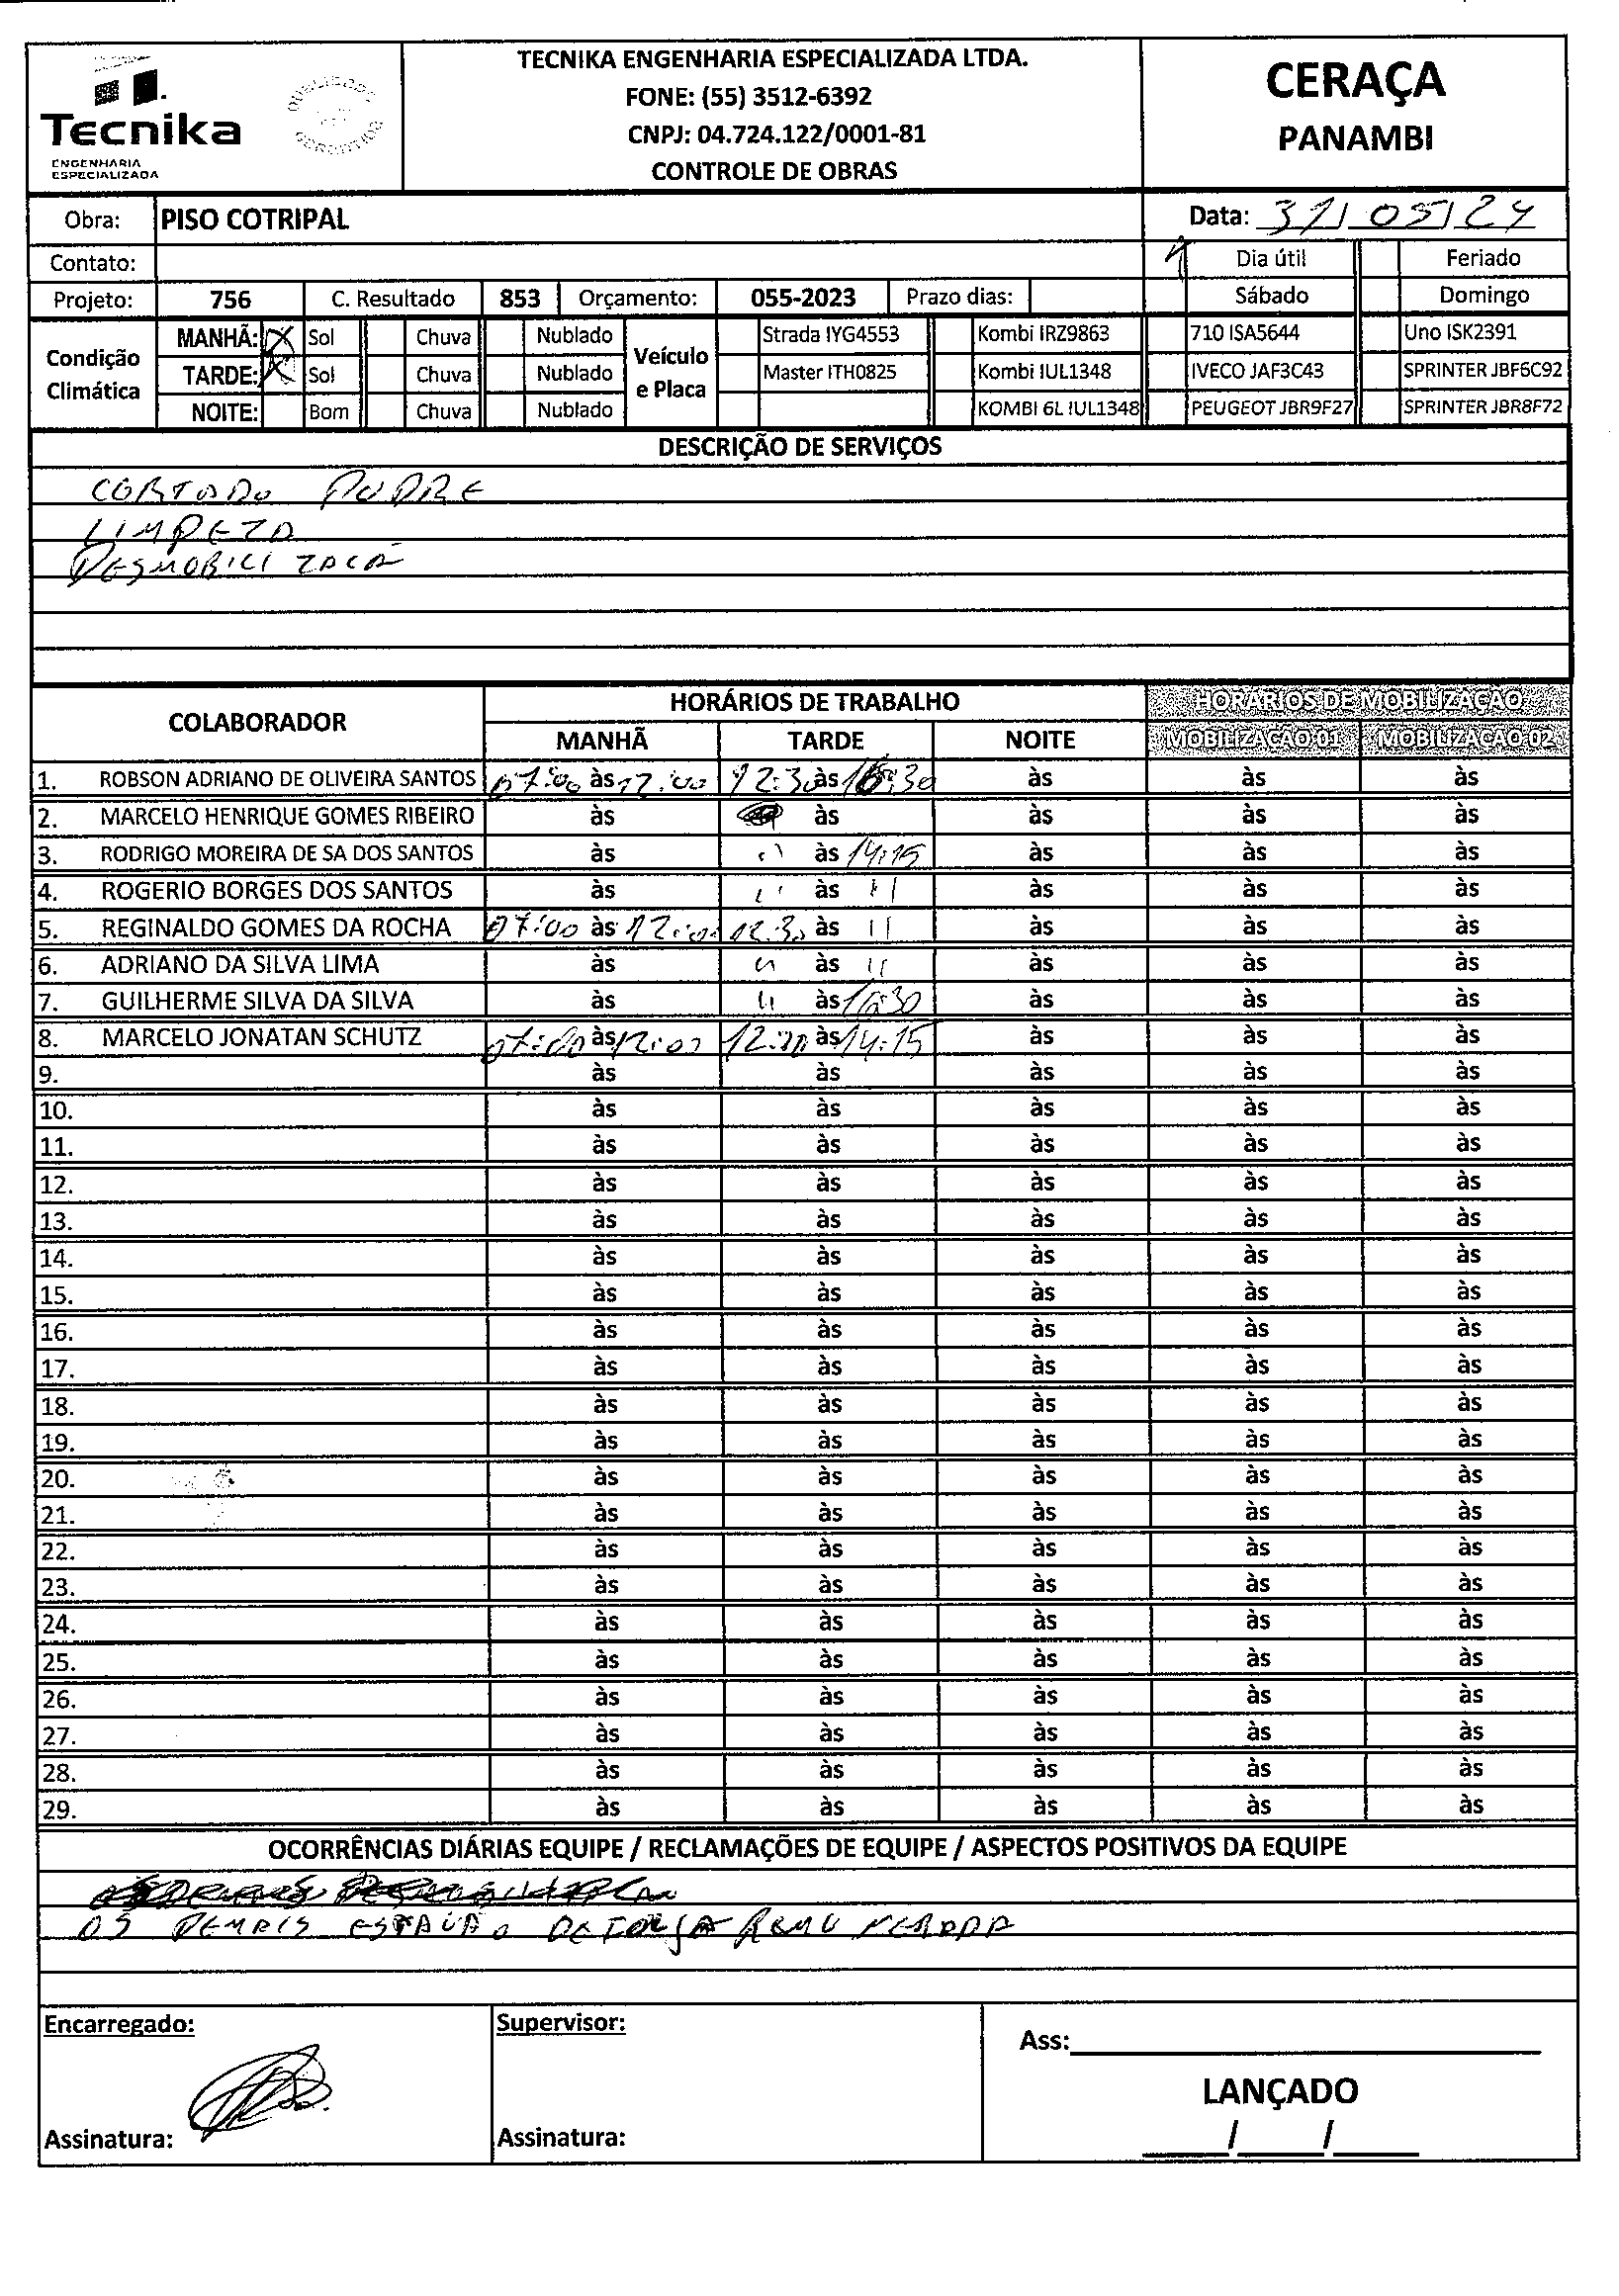 Tecnika
ENGENHARIA
ESPECIALIZADA
TECNIKA ENGENHARIA ESPECIALIZADA LTDA.
FONE: (55) 3512-6392
CNPJ: 04.724.122/0001-81
CONTROLE DE OBRAS
CERAÇA
PANAMBI
Obra: PISO COTRIPAL Data: 31/05/24
Contato: Dia útil Feriado
Projeto: 756 C. Resultado 853 Orçamento: 055-2023 Prazo dias: Sábado Domingo
Condição Climática
MANHÃ: X Sol Chuva Nublado
TARDE: X Sol Chuva Nublado
NOITE: Bom Chuva Nublado
Veículo e Placa
Strada IYG4553 Kombi IRZ9863 710 ISA5644 Uno ISK2391
Master ITH0825 Kombi IUL1348 IVECO JAF3C43 SPRINTER JBF6C92
KOMBI 6L IUL1348 PEUGEOT JBR9F27 SPRINTER JBR8F72
DESCRIÇÃO DE SERVIÇOS
LIMPEZA
DESMOBILIZACA
COLABORADOR HORÁRIOS DE TRABALHO HORÁRIOS DE MOBILIZAÇÃO
MANHÃ TARDE NOITE MOBILIZAÇÃO 01 MOBILIZAÇÃO 02
1. ROBSON ADRIANO DE OLIVEIRA SANTOS 07:00 às 12:00 12:30 às 16:30 às às às
2. MARCELO HENRIQUE GOMES RIBEIRO às às às às às
3. RODRIGO MOREIRA DE SA DOS SANTOS às '' às 14:15 às às às
4. ROGERIO BORGES DOS SANTOS às '' às '' às às às
5. REGINALDO GOMES DA ROCHA 07:00 às 12:00 12:30 às '' às às às
6. ADRIANO DA SILVA LIMA às '' às '' às às às
7. GUILHERME SILVA DA SILVA às '' às 16:30 às às às
8. MARCELO JONATAN SCHUTZ 07:00 às 12:00 12:30 às 14:15 às às às
9. às às às às às
10. às às às às às
11. às às às às às
12. às às às às às
13. às às às às às
14. às às às às às
15. às às às às às
16. às às às às às
17. às às às às às
18. às às às às às
19. às às às às às
20. às às às às às
21. às às às às às
22. às às às às às
23. às às às às às
24. às às às às às
25. às às às às às
26. às às às às às
27. às às às às às
28. às às às às às
29. às às às às às
OCORRÊNCIAS DIÁRIAS EQUIPE / RECLAMAÇÕES DE EQUIPE / ASPECTOS POSITIVOS DA EQUIPE
OS DEMAIS ESTAVAO DE FOLGA REMUNERADA
Encarregado: Supervisor: Ass:
LANÇADO
Assinatura: Assinatura: / /